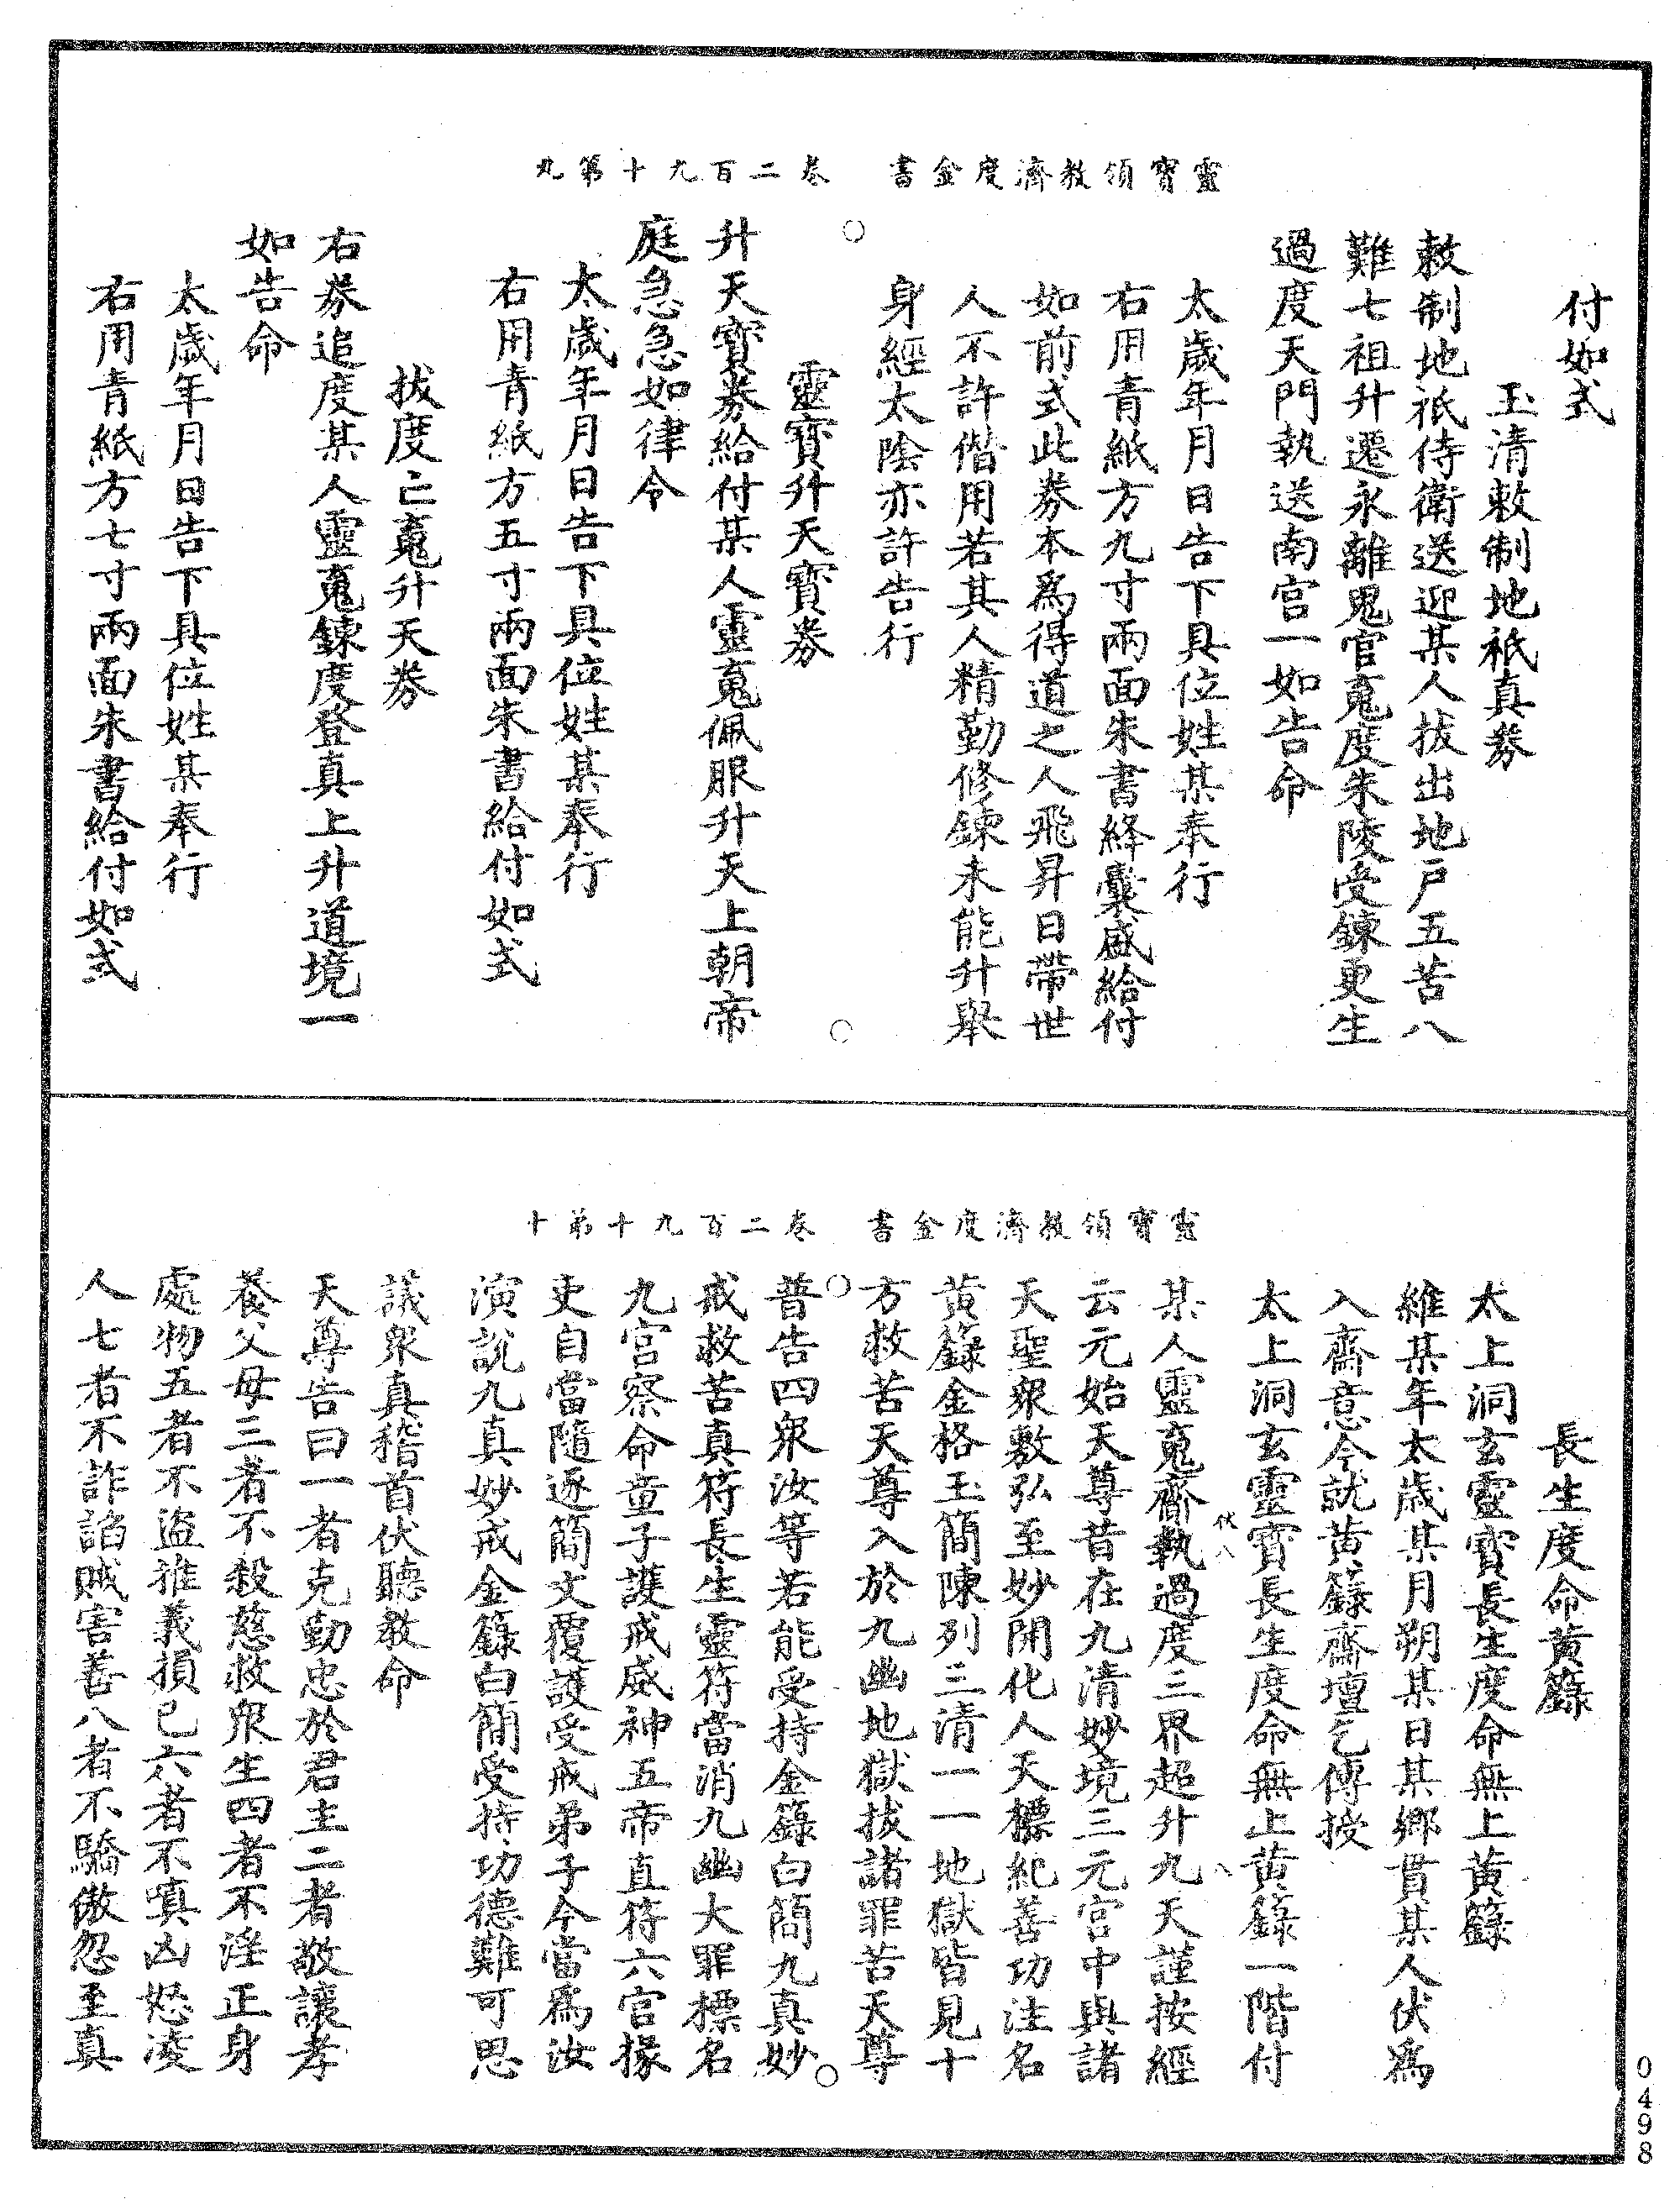 靈寶領教濟度金書　卷二百九十第九
付如式
玉清敕制地祇真券
敕制地祇侍衛送迎某人拔出地戶五苦八
難七祖升遷永離鬼官䰟度朱陵受鍊更生
過度天門執送南宫一如告命
太歲年月日告下具位姓某奉行
右用青紙方九寸兩面朱書絳囊盛給付
如前式此券本爲得道之人飛昇日帶世
人不許僭用若其人精勤修鍊未能升舉
身經太陰亦許告行
靈寶升天寶券
升天寶券給付某人靈䰟佩服升天上朝帝
庭急急如律令
太歲年月日告下具位姓某奉行
右用青紙方五寸兩面朱書給付如式
拔度亡䰟升天券
右券追度某人靈䰟鍊度登真上升道境一
如告命
太歲年月日告下具位姓某奉行
右用青紙方七寸兩面朱書給付如式
靈寶領教濟度金書　卷二百九十第十
長生度命黄籙
太上洞玄靈寶長生度命無上黄籙
維某年太歲某月朔某日某鄉貫某人伏爲
入齋意今就黄籙齋壇乞傳授
太上洞玄靈寶長生度命無上黄籙一階付
某人靈䰟齋執過度三界超升九天謹按經
伏八
云元始天尊昔在九清妙境三元宫中與諸
天聖眾敷弘至妙開化人天標紀善功注名
黄籙金格玉簡陳列三清一一地獄皆見十
方救苦天尊入於九幽地獄拔諸罪苦天尊
普告四眾汝等若能受持金籙白簡九真妙
戒救苦真符長生靈符當消九幽大罪標名
九宫察命童子護戒威神五帝直符六宫掾
吏自當隨逐簡文覆護受戒弟子今當爲汝
演說九真妙戒金籙白簡受持功德難可思
議眾真稽首伏聽教命
天尊告曰一者克勤忠於君主二者敬讓孝
養父母三者不殺慈救眾生四者不淫正身
處物五者不盜推義損己六者不嗔凶怒凌
人七者不詐諂賊害善八者不驕傲忽至真
0498